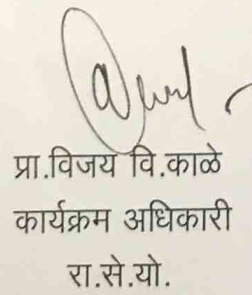 प्रा.विजय वि.काळे
कार्यक्रम अधिकारी
रा.से.यो.